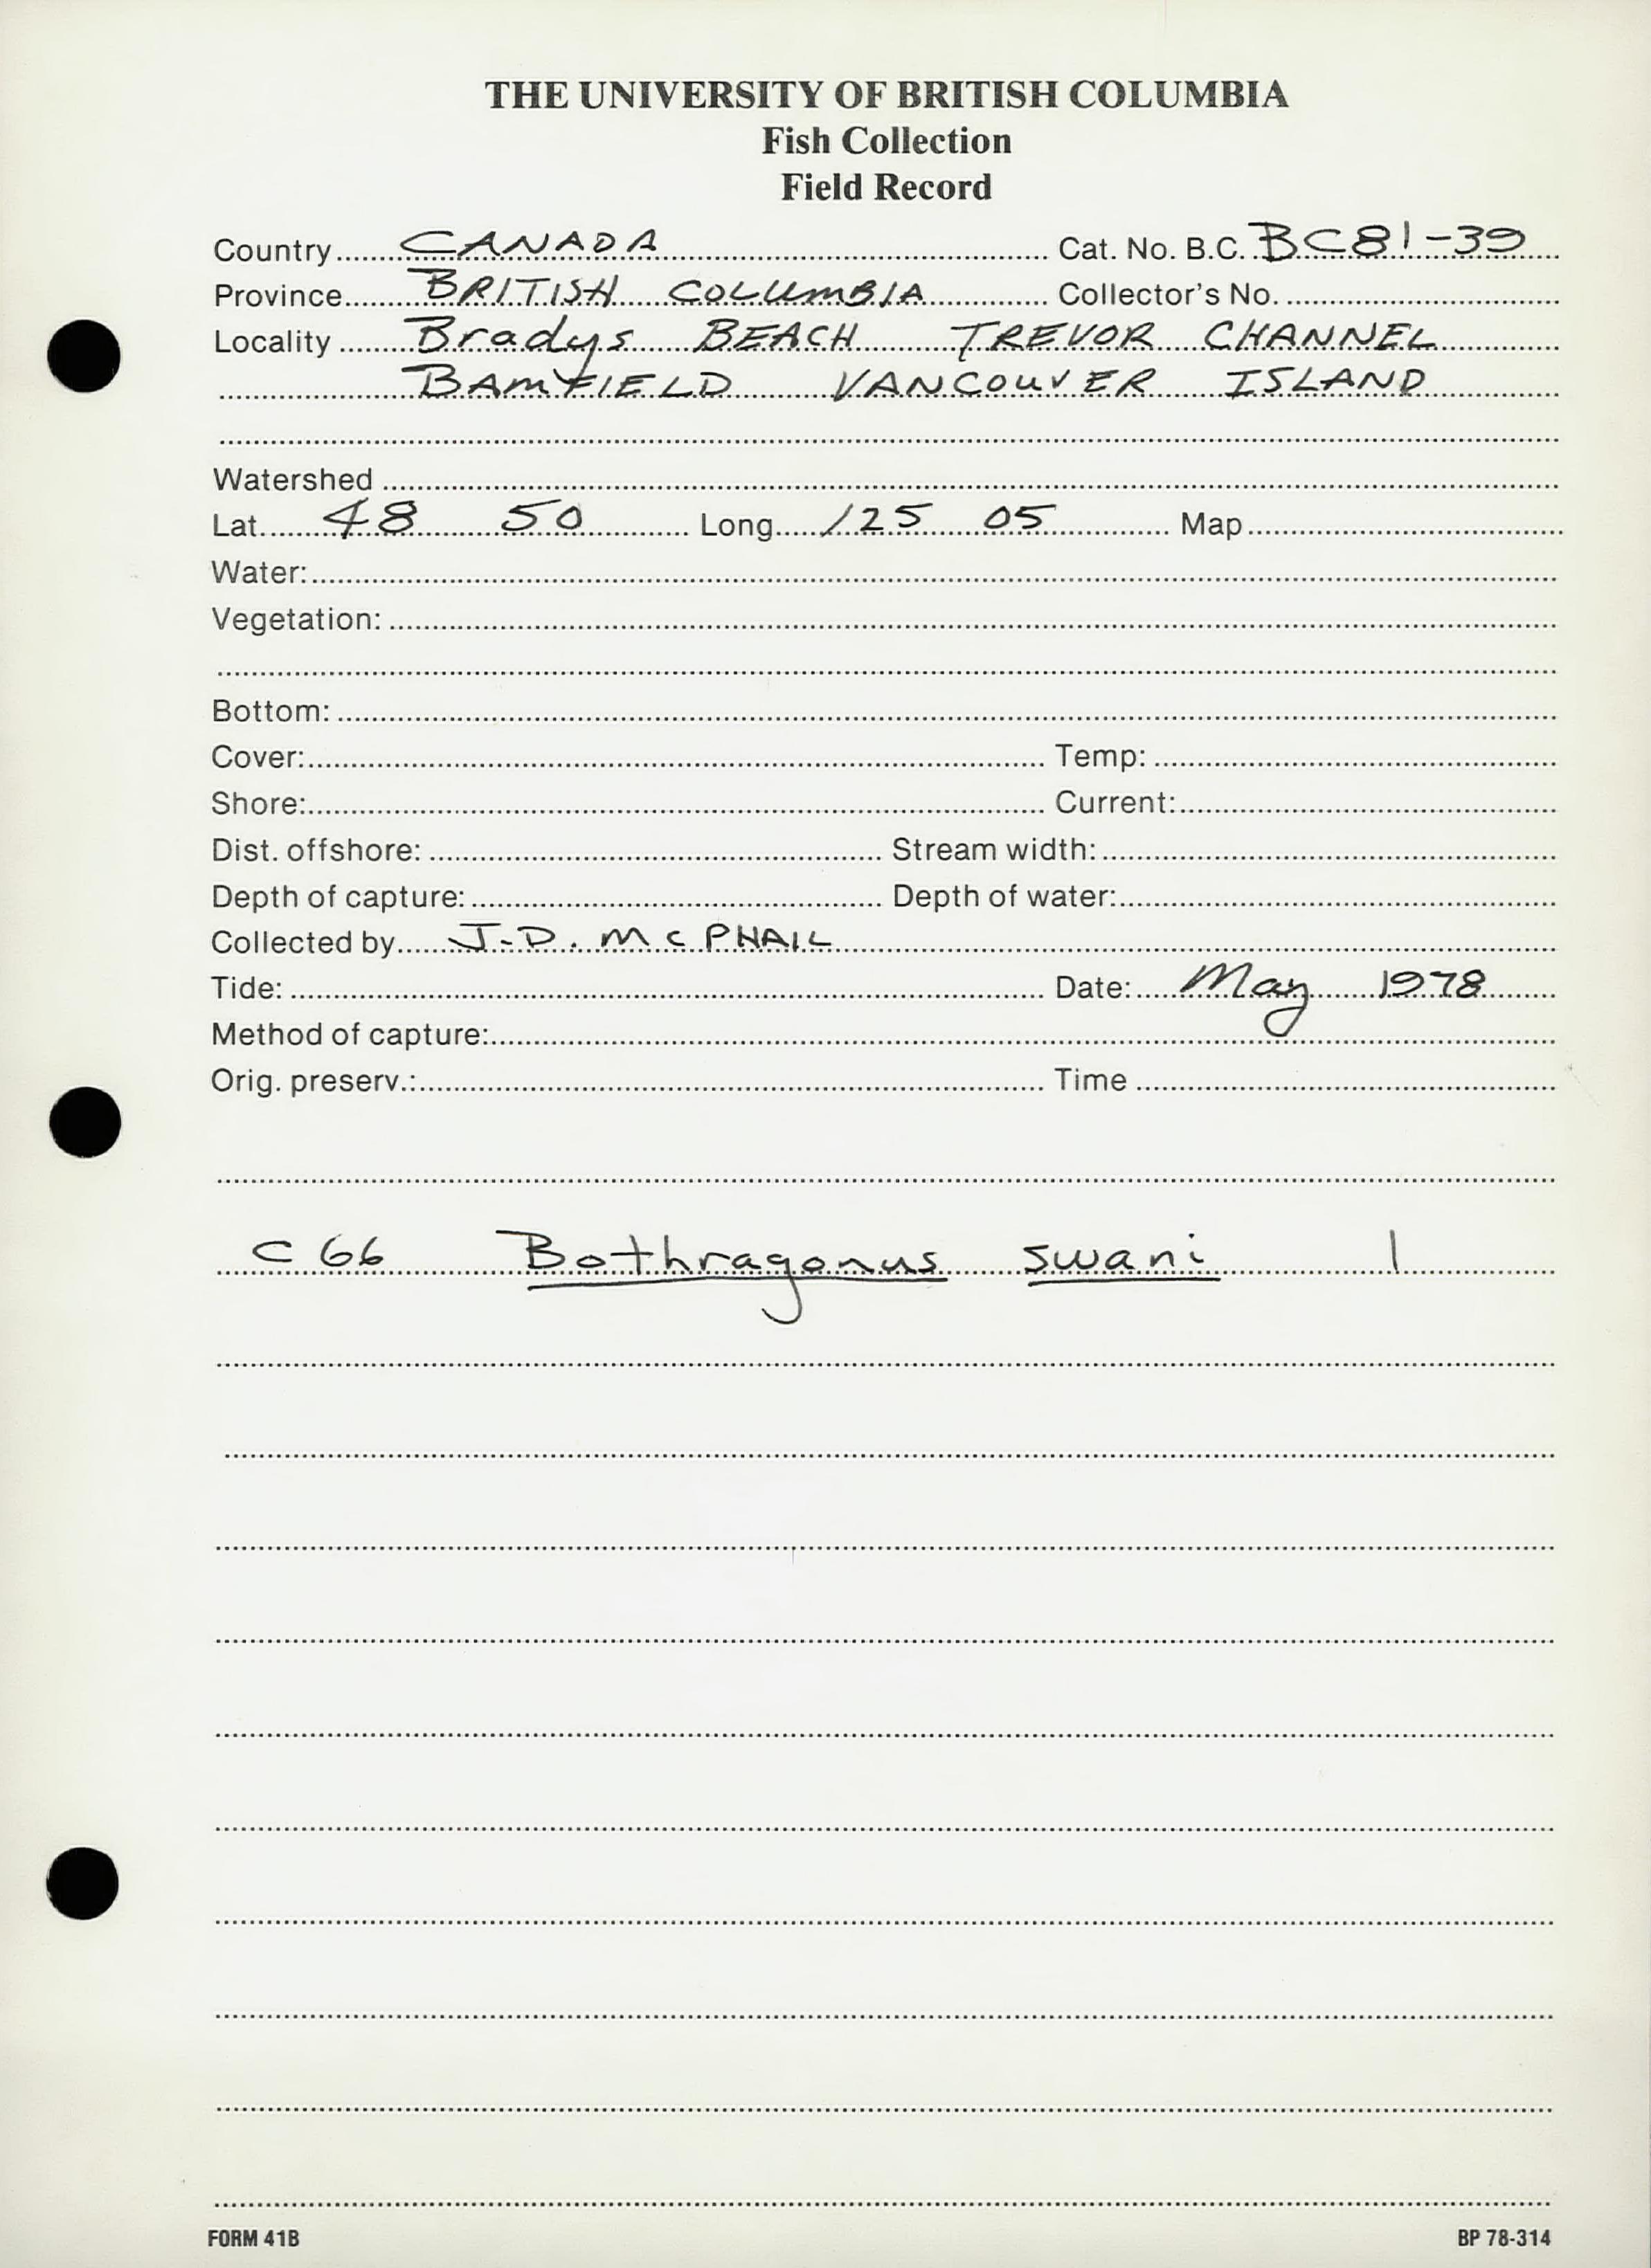 THE UNIVERSITY OF BRITISH COLUMBIA
Fish Collection
Field Record
Country CANADA Cat. No. B.C. BC81-39
Province BRITISH COLUMBIA Collector's No.
Locality Bradys BEACH TREVOR CHANNEL
BAMFIELD VANCOUVER ISLAND
Watershed
Lat. 48 50 Long. 125 05 Map
Water:
Vegetation:
Bottom:
Cover: Temp:
Shore: Current:
Dist. offshore: Stream width:
Depth of capture: Depth of water:
Collected by J.D. McPHAIL
Tide: Date: May 1978
Method of capture:
Orig. preserv.: Time
C 66 Bothragonus swani 1
FORM 41B BP 78-314